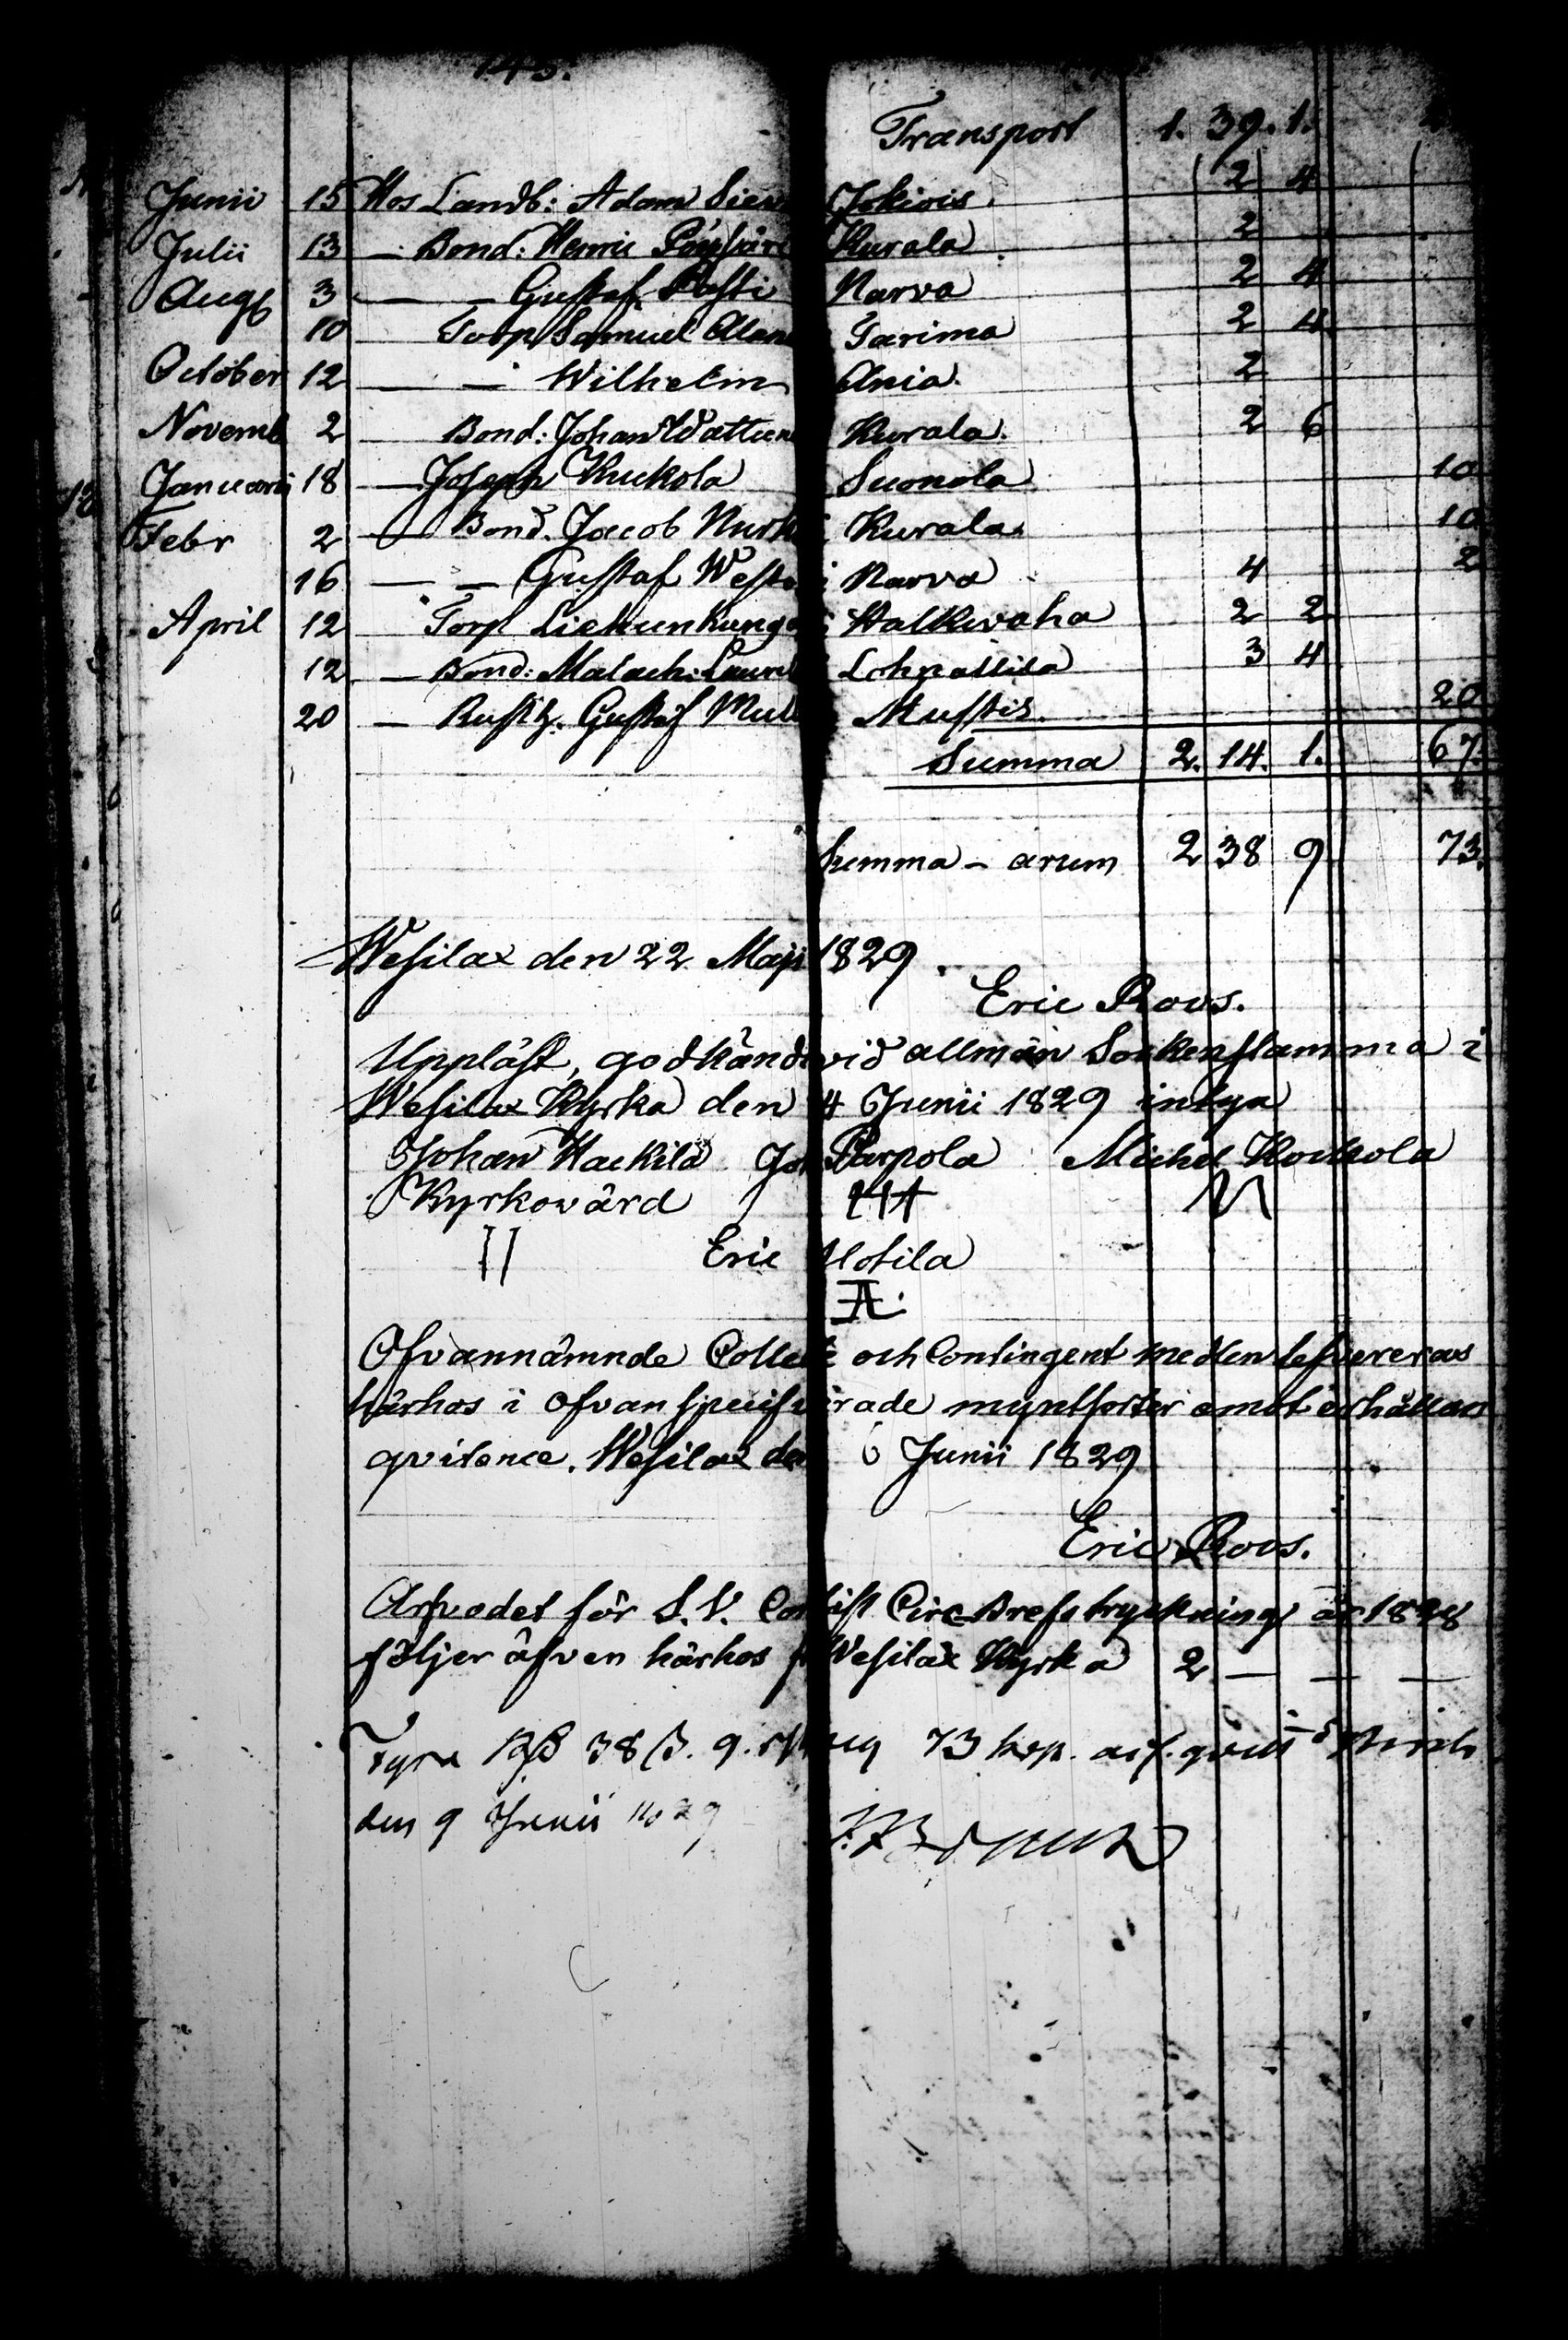 145.
Transport 1. 39. 1.
Junii 15 Hos Landb: Adam Jokiois. 2 4
Julii 13 — Bond: Henric Kurala 2
Aug 3 — — Gustaf Pasti Narva 2 4
10 Torp Samuel Tarima 2 4
October 12 — — Wilhelm Ania. 2
Novemb 2 — Bond: Johan Kurala. 2 6
Januarii 18 — Joseph Kuckola Suonola 10
Febr 2 — Bond. Jacob Kurala. 10
16 — — Gustaf Narva 4 2
April 12 Torp Walkwaha 2 2
12 — Bond: Malach: Lohpallila 3 4
20 — Rusth. Gustaf Mustis. 20
Summa 2. 14. 1. 67.
Summa - arum 2 38 9 73.
Wesilax den 22 Maji 1829.
Eric Roos.
Uppläst, godkänd vid allmän Sockenstamma i
Wesilax Kyrka den 4 Junii 1829 intyga
Johan Hackila Joh Parpola Michel Kockola
Kyrkovärd
Eric
Ofvannämnde Collect och Contingent medlen lefvereras
härhos i ofvan specificerade myntsorter emot erhållan
qvitence. Wesilax den 6 Junii 1829
Eric Roos.
Arfvodet för S. V. Circ Brefs tryckning år 1828
följer äfven härhos Wesilax Kyrka 2 — — —
38 ß. 9. 73 kop.
den 9 Junii 1829